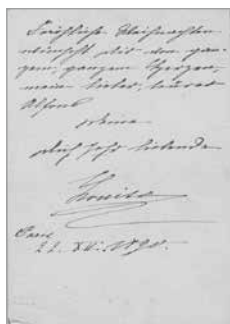 Fröhliche Weihnachten
wünscht Dir von gan-
zem, ganzem Herzen,
mein lieber, teurer
Alfons
Deine
Dich sehr liebende
Louise
22. XII. 1890.